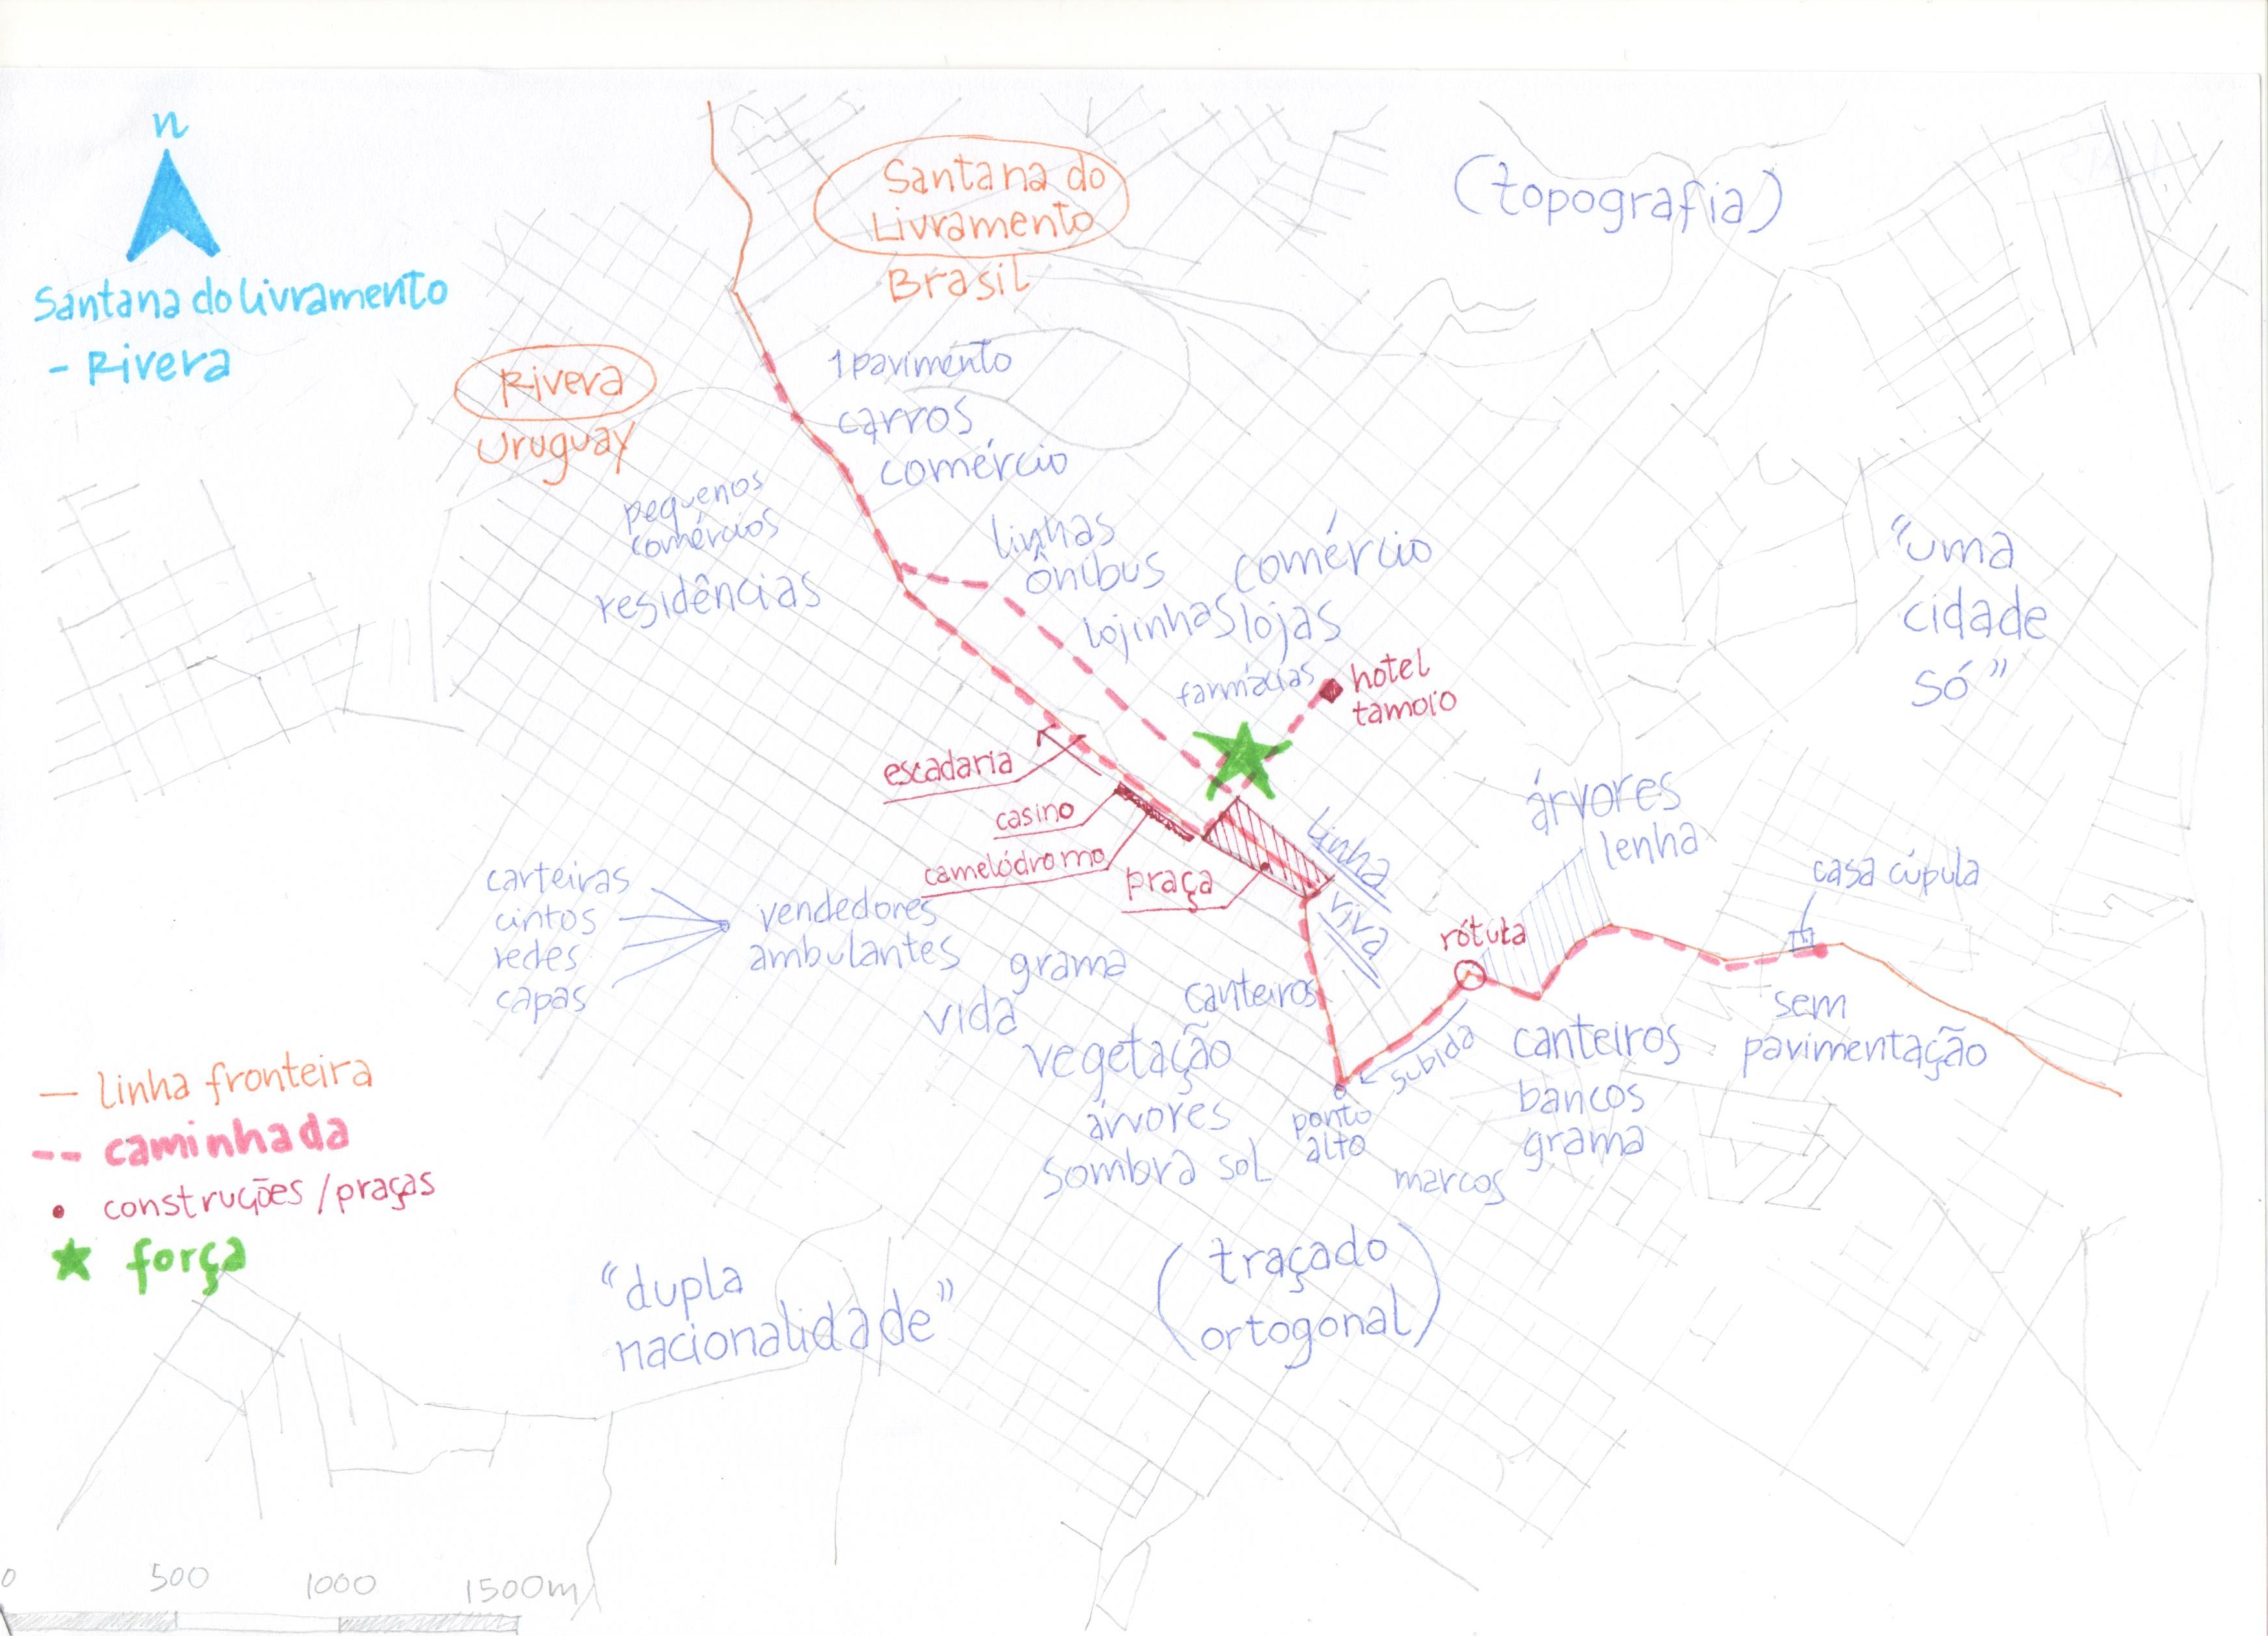 n
Santana do Livramento
- Rivera
Santana do
Livramento
Brasil
(topografia)
Rivera
Uruguay
1 pavimento
carros
comércio
pequenos
comércios
residências
linhas
ônibus
comércio
lojinhas lojas
farmácias
hotel
tamoio
"uma
cidade
só"
escadaria
casino
camelódromo
praça
linha
viva
árvores
lenha
casa cúpula
rótula
sem
pavimentação
carteiras
cintos
redes
capas
vendedores
ambulantes
grama
vida
canteiros
vegetação
árvores
sombra sol
ponto
alto
subida
canteiros
bancos
grama
marcos
linha fronteira
caminhada
construções/praças
força
"dupla
nacionalidade"
(traçado
ortogonal)
0 500 1000 1500m